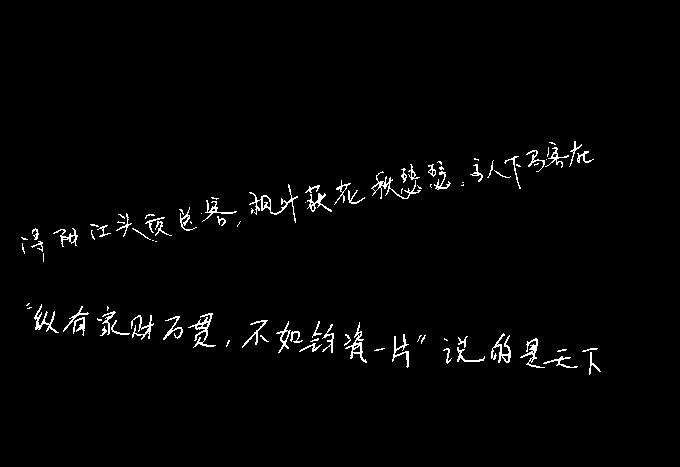 浔阳江头夜送客,枫叶荻花秋瑟瑟。主人下马客在
“纵有家财万贯,不如钧瓷一片”说的是天下